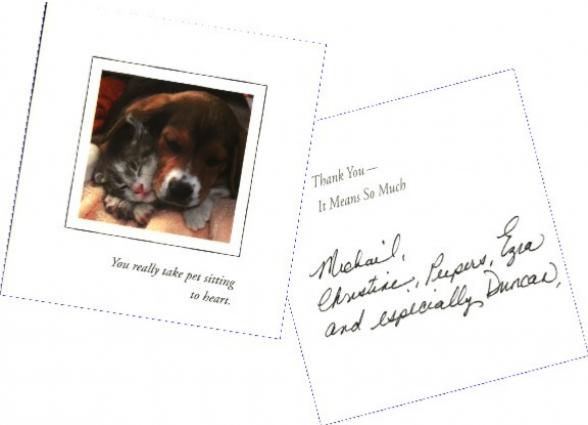 You really take pet sitting
to heart.
Thank You —
It Means So Much
Michail,
Christine, Peepers, Ezra
and especially Duncan,